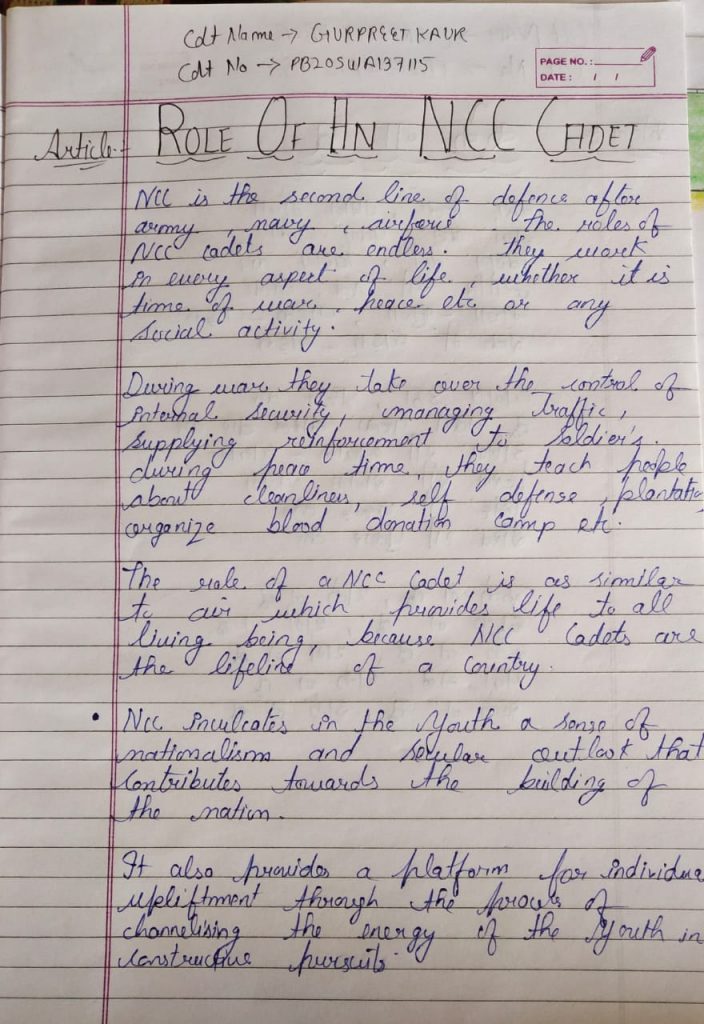 Cdt Name → GURPREET KAUR
Cdt No → PB20SWA137115
PAGE NO. :
DATE : / /
Article:- ROLE OF AN NCC CADET
NCC is the second line of defence after
army, navy, airforce. The roles of
NCC cadets are endless. they work
in every aspect of life, whether it is
time of war, peace etc or any
social activity.
During war they take over the control of
internal security, managing Traffic,
supplying reinforcement to soldier's.
during peace time, they teach people
about cleanliness, self defense, plantatio
organize blood donation camp etc.
The role of a NCC Cadet is as similar
to air which provides life to all
living being, because NCC Cadets are
the lifeline of a country.
• NCC inculcates in the Youth a sense of
nationalism and secular outlook that
contributes towards the building of
the nation.
It also provides a platform for individua
upliftment through the process of
channelising the energy of the Youth in
constructive pursuits.